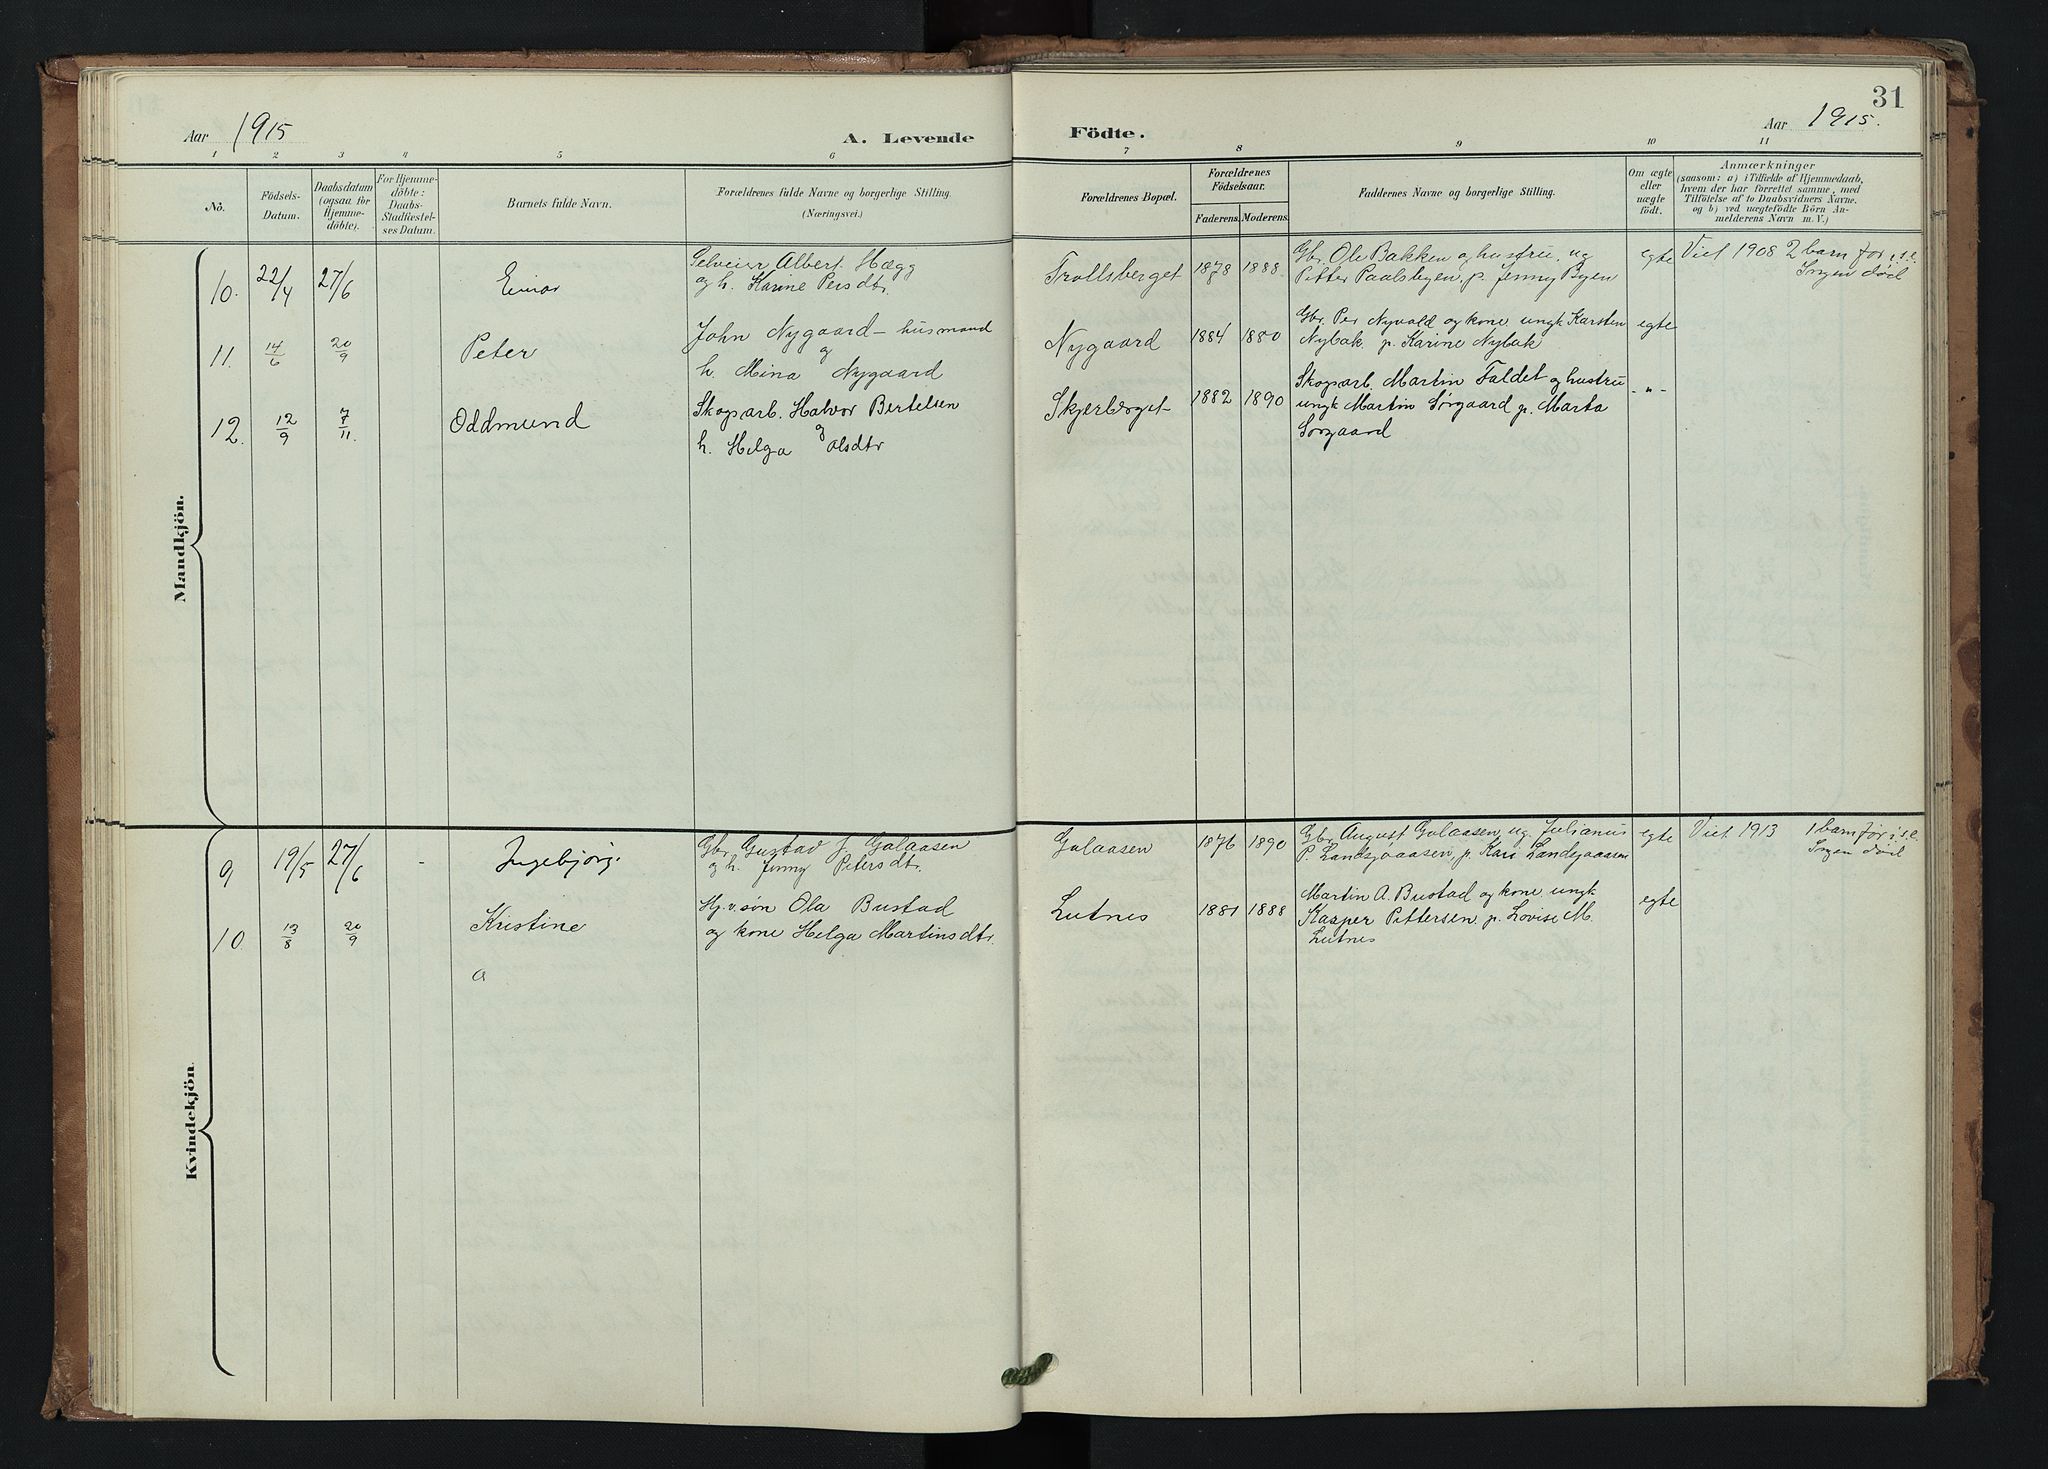 31
Aar 1915
A. Levende
Födte.
Aar 1915.
1 2 3 4 5 6 7 8 9 10 11
No.
Födsels-
Datum.
Daabsdatum
(ogsaa for
Hjemme-
döbte).
For Hjemme-
döbte:
Daabs-
Stadfæstel-
ses Datum.
Barnets fulde Navn.
Forældrenes fulde Navne og borgerlige Stilling.
(Næringsvei.)
Forældrenes Bopæl.
Forældrenes
Födselsaar.
Faderens. Moderens.
Faddernes Navne og borgerlige Stilling.
Om ægte
eller
uægte
födt.
Anmærkninger
(saasom: a) i Tilfælde af Hjemmedaab,
hvem der har forrettet samme, med
Tilföielse af to Daabsvidners Navne.
og b) ved uægtefödte Börn An-
melderens Navn m. V.)
Mandkjön.
10. 22/4 27/6 Einar
Selveier Albert Hægg
og h. Karine Persdtr.
Trollsberget 1878 1888
Gbr. Ole Bakken og hustru, ug
Petter Paalsbyen, p. Jenny Byen
egte
Viet 1908 2 barn før i s.e.
Ingen död
11. 14/6 20/9 Peter
John Nygaard - husmand
og
h. Mina Nygaard
Nygaard 1884 1880
Gbr. Per Nyvold og kone ungk Karsten
Nybak p. Karine Nybak
egte
12. 12/9 7/11. Oddmund
Skogsarb. Halvor Bertelsen
og
h. Helga Olsdtr
Skjerberget 1882 1890
Skogsarb. Martin Faldet og hustru
ungk Martin Sørgaard p. Marta
Sørgaard
-"-
Kvindekjön.
9 19/5 27/6 - Ingebjörg.
Gbr. Gustav J. Galaasen
og h. Jenny Petersdtr.
Galaasen 1876 1890
Gbr August Galaasen, ug. Julianus
P. Landsjøaasen, p. Kari Landsjøaasen
egte
Viet 1913 1 barn før i s.e.
Ingen död
10. 13/8 20/9 Kristine
Hj.v.søn Ola Bustad
og kone Helga Martinsdtr.
Lutnes 1881 1888
Martin A. Bustad og kone ungk
Kasper Pettersen p. Lovise M.
Lutnes
egte
a